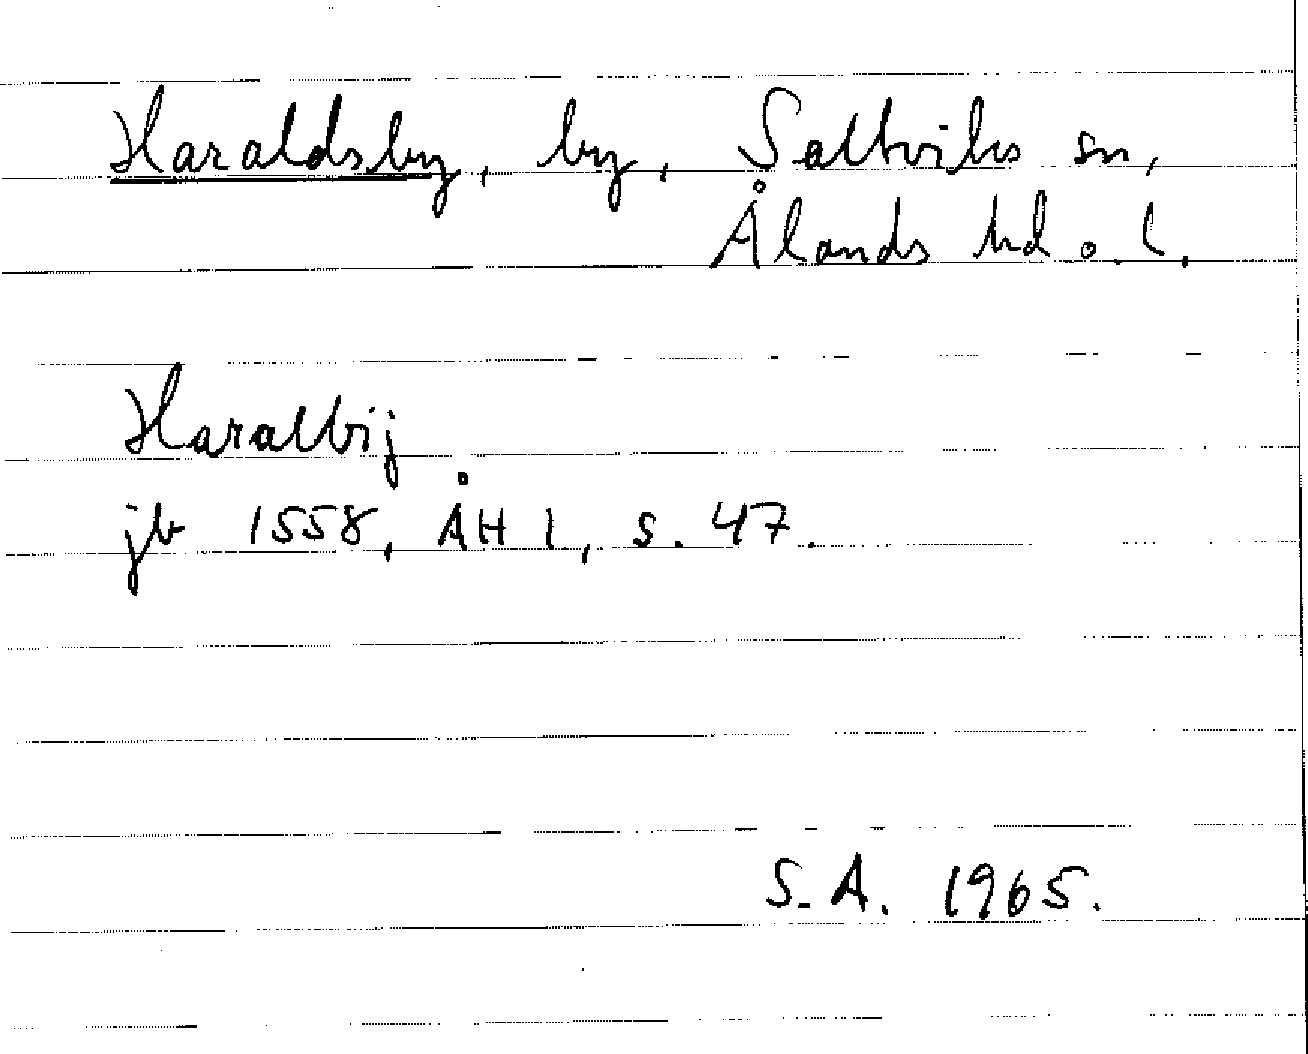 Haraldsby, by, Saltviks sn,
Ålands hd o. l.
Haralbij
jb 1558, ÅH 1, s. 47.
S.A. 1965.